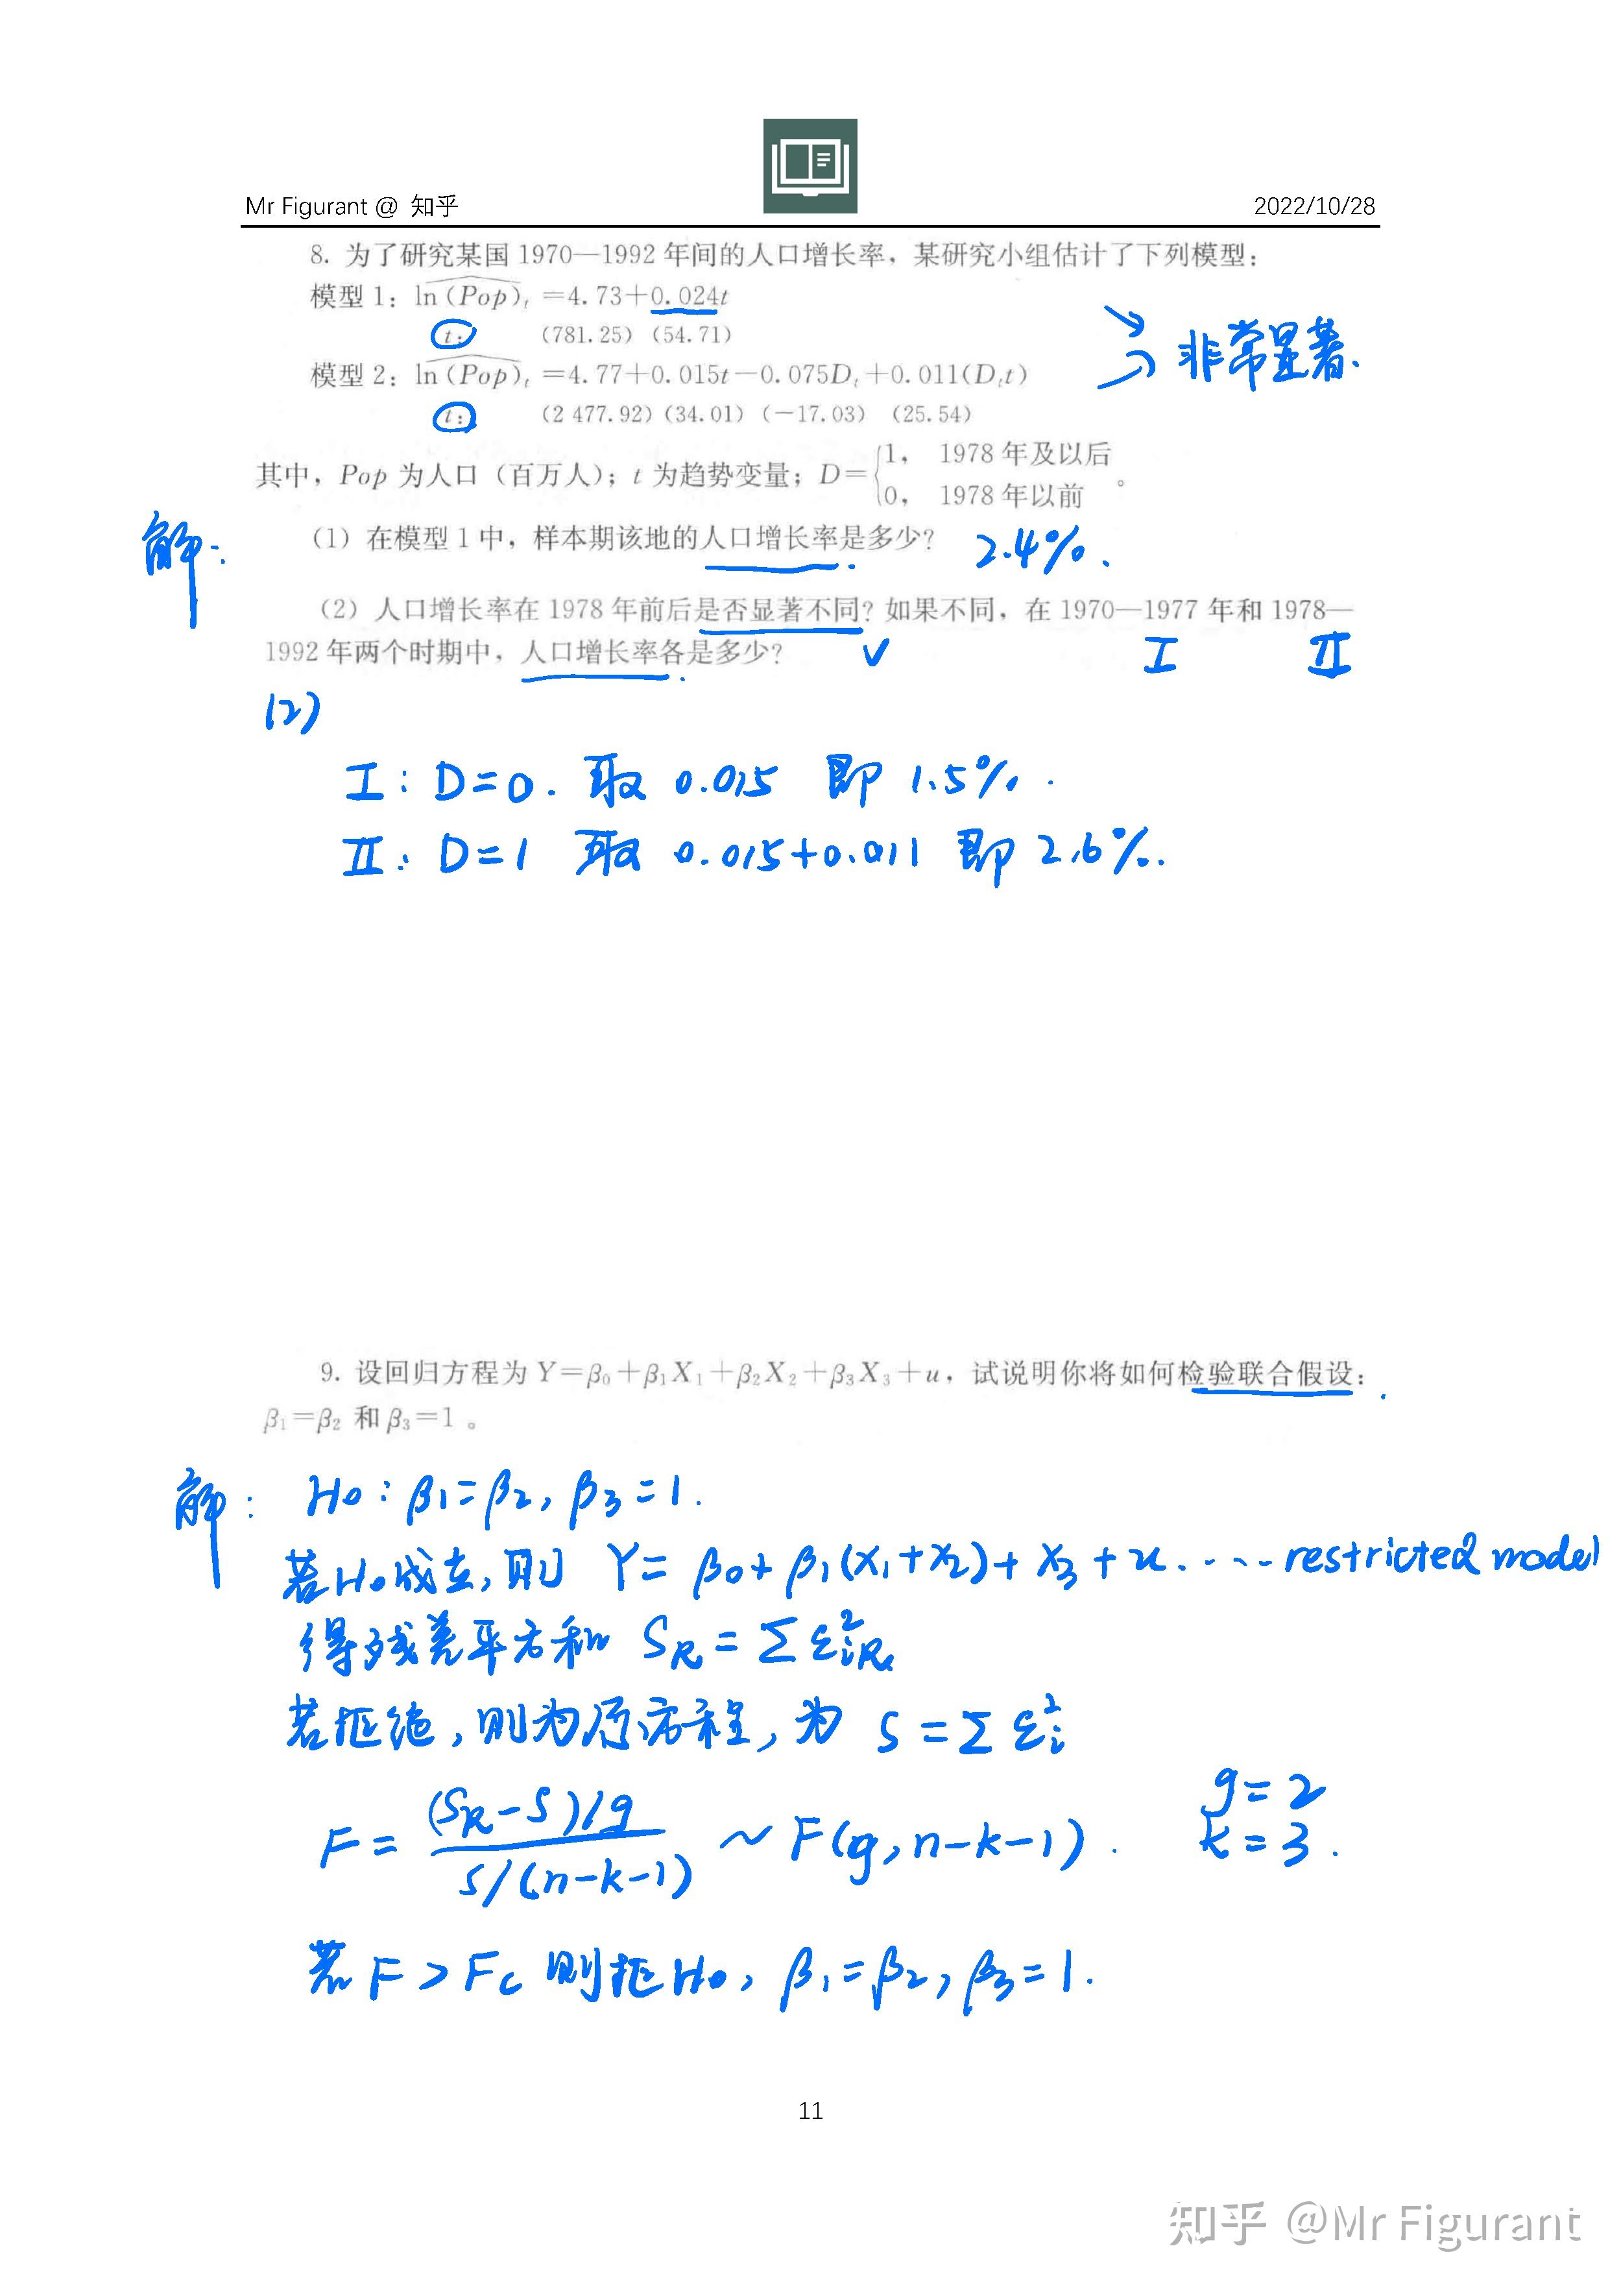 Mr Figurant @ 知乎 2022/10/28
8. 为了研究某国 1970—1992 年间的人口增长率，某研究小组估计了下列模型：
模型 1：ln(Pop)t =4.73+0.024t
t: (781.25) (54.71)
模型 2：ln(Pop)t =4.77+0.015t−0.075Dt+0.011(Dtt)
t: (2 477.92) (34.01) (−17.03) (25.54)
非常显著.
其中，Pop 为人口（百万人）；t 为趋势变量；D={1， 1978 年及以后
0， 1978 年以前 。
解：
(1) 在模型 1 中，样本期该地的人口增长率是多少？ 2.4%.
(2) 人口增长率在 1978 年前后是否显著不同？如果不同，在 1970—1977 年和 1978—
1992 年两个时期中，人口增长率各是多少？ √ I II
(2)
I: D=0. 取 0.015 即 1.5%.
II: D=1 取 0.015+0.011 即 2.6%.
9. 设回归方程为 Y=β0+β1X1+β2X2+β3X3+u，试说明你将如何检验联合假设：
β1=β2 和 β3=1 。
解: H0: β1=β2, β3=1.
若H0成立, 则 Y= β0+ β1(X1+X2)+ X3 + u. ···· restricted model
得残差平方和 SR = Σ εiR²
若拒绝, 则为原方程, 为 S = Σ εi²
F = (SR−S)/g / S/(n−k−1) ~ F(g, n−k−1). g=2
k=3.
若 F > Fc 则拒H0, β1=β2, β3=1.
11
知乎 @Mr Figurant